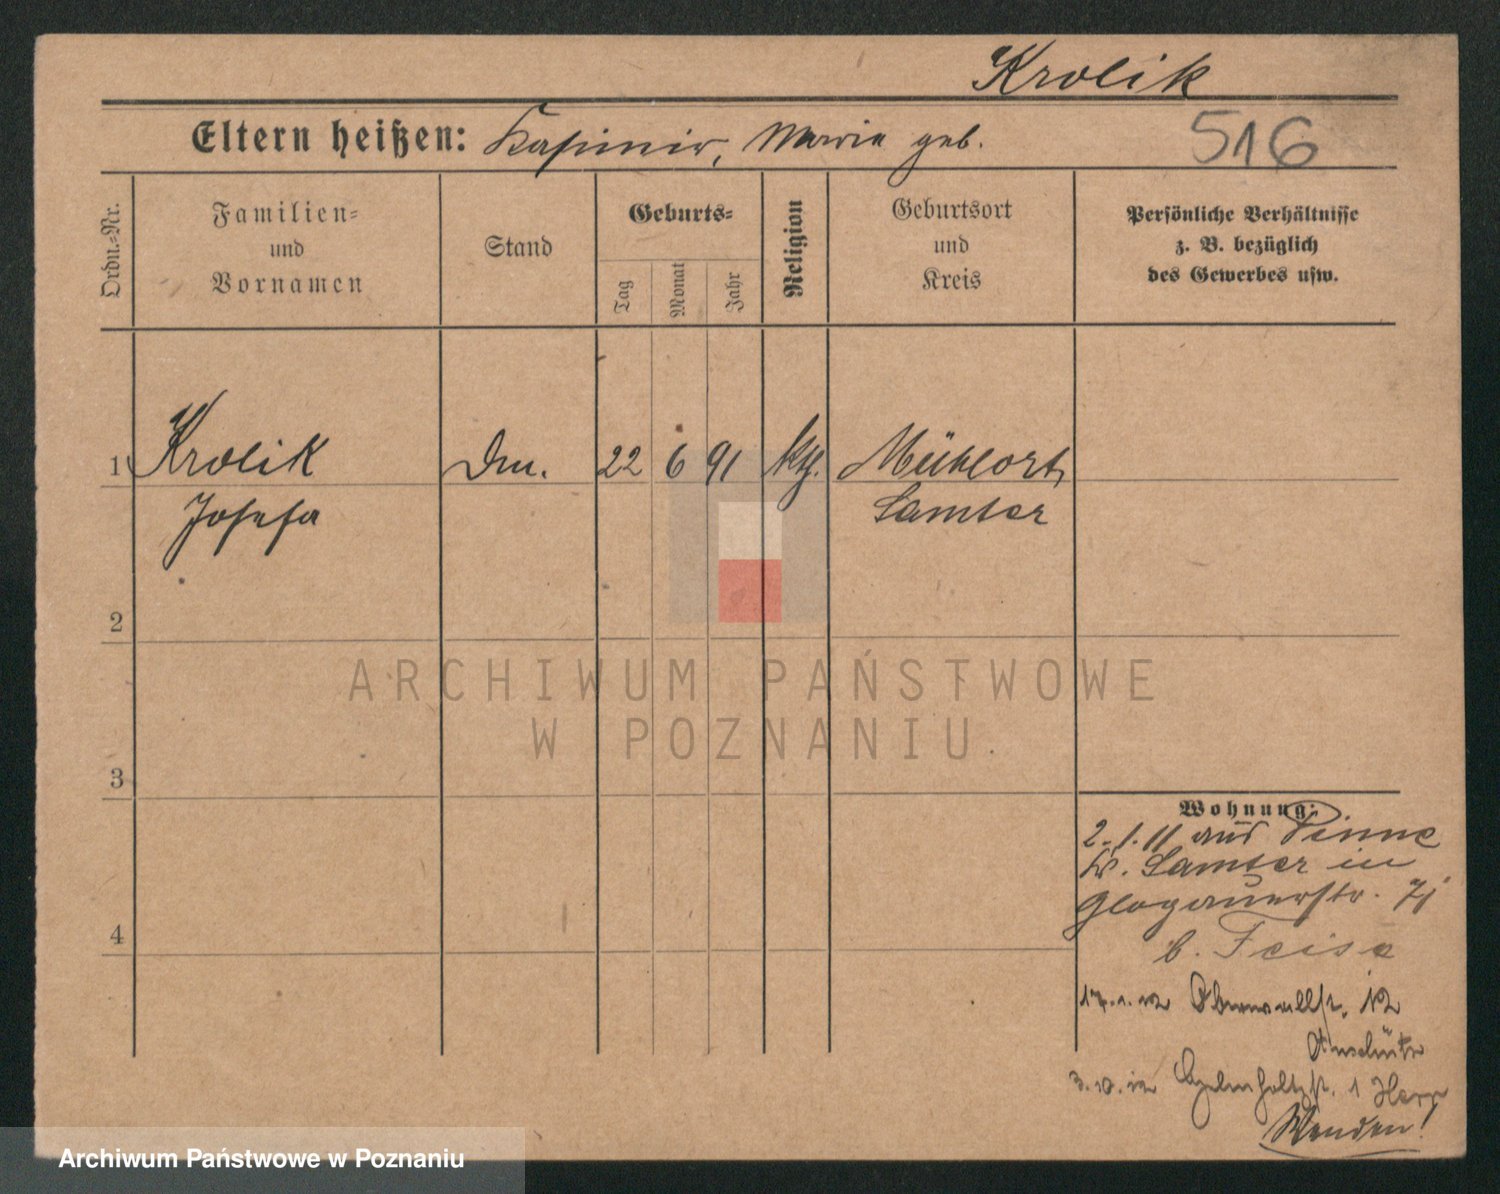 Krolik
Eltern heißen: Kasimir, Maria geb.
516
Ordn.-Nr.
Familien-
und
Vornamen
Stand
Geburts-
Tag
Monat
Jahr
Religion
Geburtsort
und
Kreis
Persönliche Verhältnisse
z. B. bezüglich
des Gewerbes usw.
1 Krolik Dm. 22 6 91 kth. Mühlort,
Josefa Samter
2
3
4
Wohnung:
2.1.11 aus Pinne
Kr. Samter in
Glogauerstr.
b. Feise
17.1.12 Oberwallst. 12
Anschütz
3.10.12 Helmholtzst. 1 Herr
Wenden!
ARCHIWUM PAŃSTWOWE
W POZNANIU
Archiwum Państwowe w Poznaniu